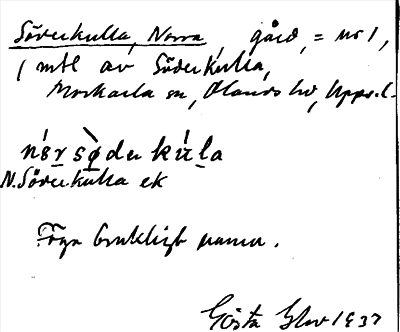 Söderkulla, Norra, gård, = nr 1,
1 mtl av Söderkulla,
Morkarla sn, Olands hd, Upps. l.
nór sø̀derkúla
N. Söderkulla ek
Föga brukligt namn.
Gösta 1937